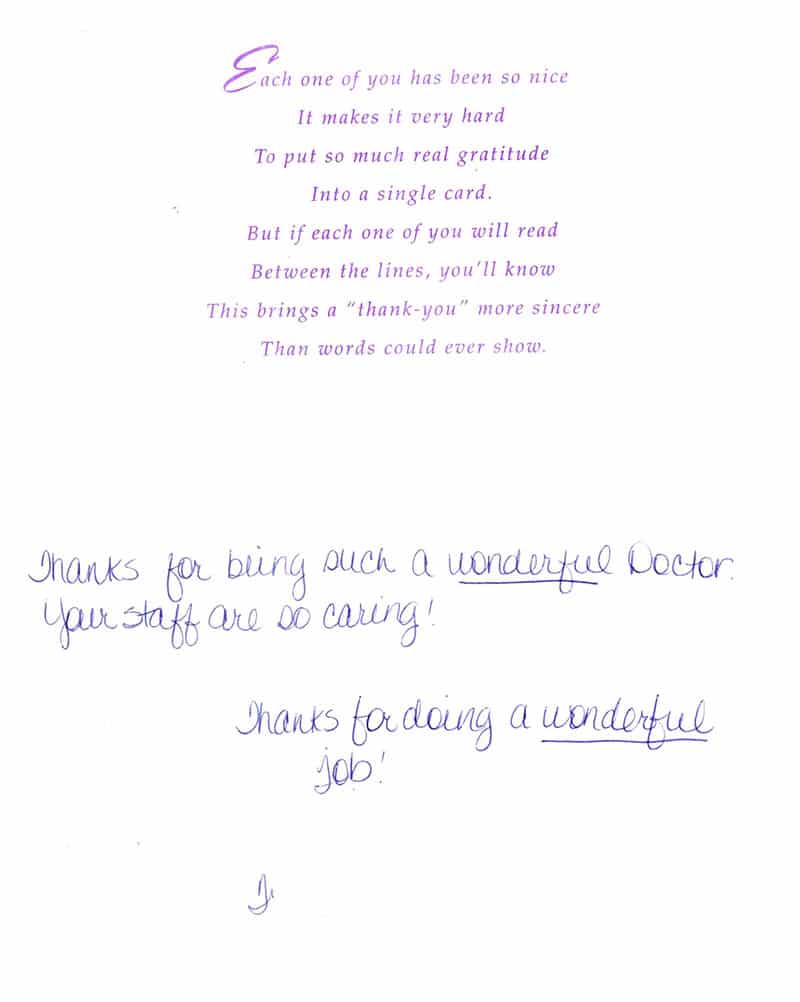 Each one of you has been so nice
It makes it very hard
To put so much real gratitude
Into a single card.
But if each one of you will read
Between the lines, you'll know
This brings a “thank-you” more sincere
Than words could ever show.
Thanks for being such a wonderful Doctor.
Your staff are so caring!
Thanks for doing a wonderful
job!